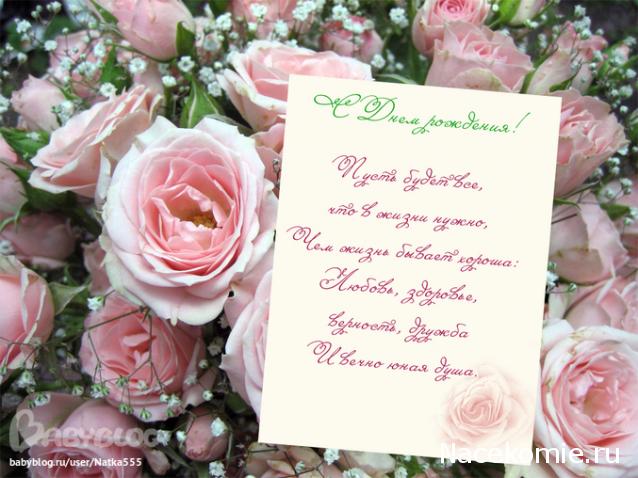 С Днем рождения!
Пусть будет все,
что в жизни нужно,
Чем жизнь бывает хороша:
Любовь, здоровье,
верность, дружба
И вечно юная душа.
BABYBLOG
babyblog.ru/user/Natka555
Nacekomie.ru